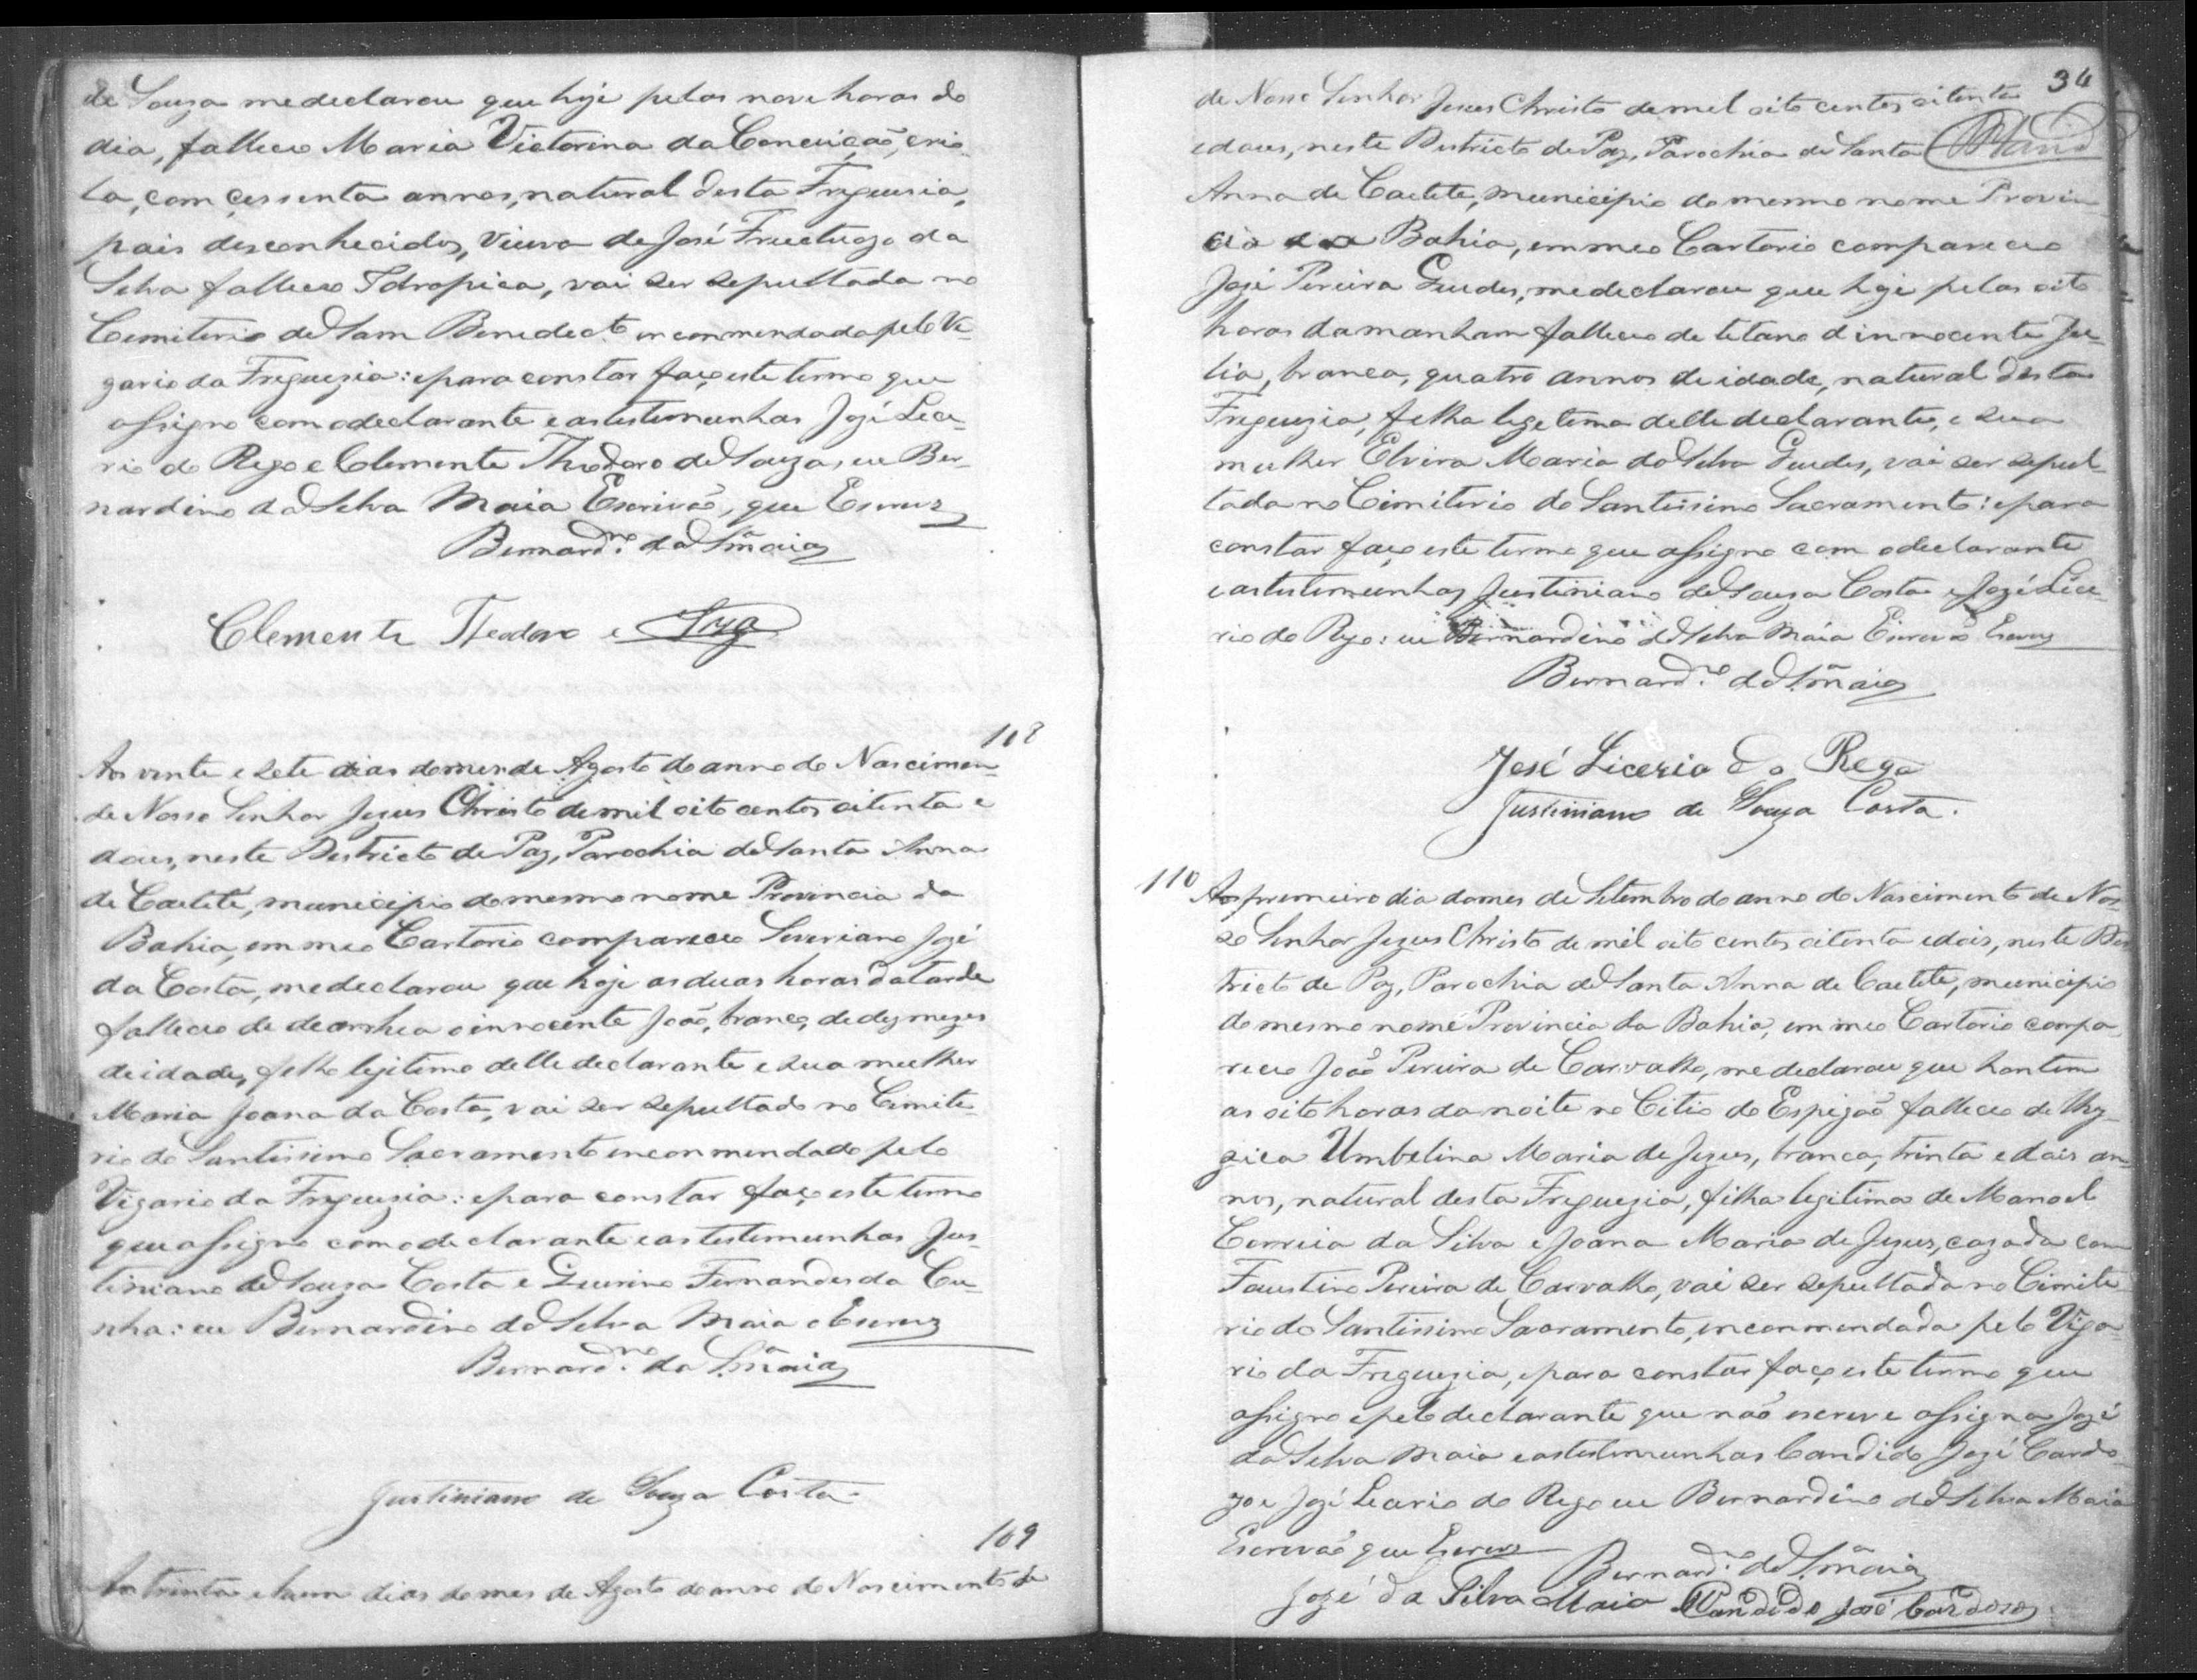 de Souza me declarou que hoje pelas nove horas do
dia, falleceo Maria Victorina da Conceição, crio-
la, com cessenta annos, natural desta Freguesia,
pais desconhecidos, Viuva de José Fructuozo da
Silva falleceo Idropica, vai ser sepultada no
Cemiterio de Sam Benedicto encommendada pelo Vi-
gario da Freguezia: epara constar faço este termo que
assigno com odeclarante eas testemunhas Jozé Lice-
rio do Rego e Clemente Theodoro de Souza, eu Ber-
nardino da Silva Maia Escrivão, que Escrevz
Bernardno da S. Maia
Clemente Teodoro e Soza
118
Aos vinte e sete dias do mes de Agosto do anno do Nascimen-
de Nosso Senhor Jezus Christo de mil oito centos oitenta e
dous, neste Destricto de Paz, Parochia de Santa Anna
de Caetité, municipio do mesmo nome Provincia da
Bahia, em meo Cartorio compareceo Severiano Jozé
da Costa, me declarou que hoje as duas horas da tarde
falleceo de dearrhea o innocente João, branco, de dez mezes
de idade, filho legitimo delle declarante e sua mulher
Maria Joana da Costa, vai ser sepultado no Cimite
rio do Santissimo Sacramento encommendado pelo
Vigario da Freguezia: epara constar faço este termo
que assigno com o declarante eas testemunhas Jus-
tiniano de Souza Costa e Guirino Fernandes da Cu-
nha: eu Bernardino da Silva Maia o Escrevz
Bernardno da S. Maia
Justiniano de Souza Costa.
109
Aos trinta e hum dias do mes de Agosto do anno do Nascimento de
34
de Nosso Senhor Jesus Christo de mil oito centos oitenta
edous, neste Destricto de Paz, Parochia de Santa
Anna de Caetete, municipio do mesmo nome Provin-
cia da Bahia, em meo Cartorio compareceo
Jozé Pereira Guedes, me declarou que hoje pelas oito
horas da manham falleceo de tetano a innocente Ju-
lia, branca, quatro annos de idade, natural desta
Freguezia, filha legetima delle declarante, e sua
mulher Elvira Maria da Silva Guedes, vai ser sepul-
tada no Cimiterio do Santissimo Sacramento: epara
constar faço este termo que assigno com odeclarante
eas testemunhas Justiniano de Souza Costa e Jozé Lice-
rio do Rego: eu Bernardino da Silva Maia Escrivão Escrevz
Bernardno da S. Maia
José Licerio do Rego
Justiniano de Souza Costa.
110
Aos premeiro dia do mes de Setembro do anno do Nascimento de Nos-
so Senhor Jezus Christo de mil oito centos oitenta edois, neste Des-
tricto de Paz, Parochia de Santa Anna de Caetete, municipio
do mesmo nome Provincia da Bahia, em meo Cartorio compa-
receo João Pereira de Carvalho, me declarou que hontem
as oito horas da noite no Citio do Espigão falleceo de thy-
zica Umbelina Maria de Jezus, branca, trinta e dois an-
nos, natural desta Freguezia, filha legitima de Manoel
Correia da Silva e Joana Maria de Jezus, cazada com
Faustino Pereira de Carvalho, vai ser sepultada no Cimite
rio do Santissimo Sacramento, encommendada pelo Viga-
rio da Freguezia, epara constar faço este termo que
assigno epelo declarante que não escreve assigna Jozé
da Silva Maia eas testemunhas Candido Jozé Cardo-
zo e Jozé Licerio do Rego eu Bernardino da Silva Maia
Escrivão que Escrevz
Bernardno da S. Maia
Jozé da Silva Maia Candido José Cardozo